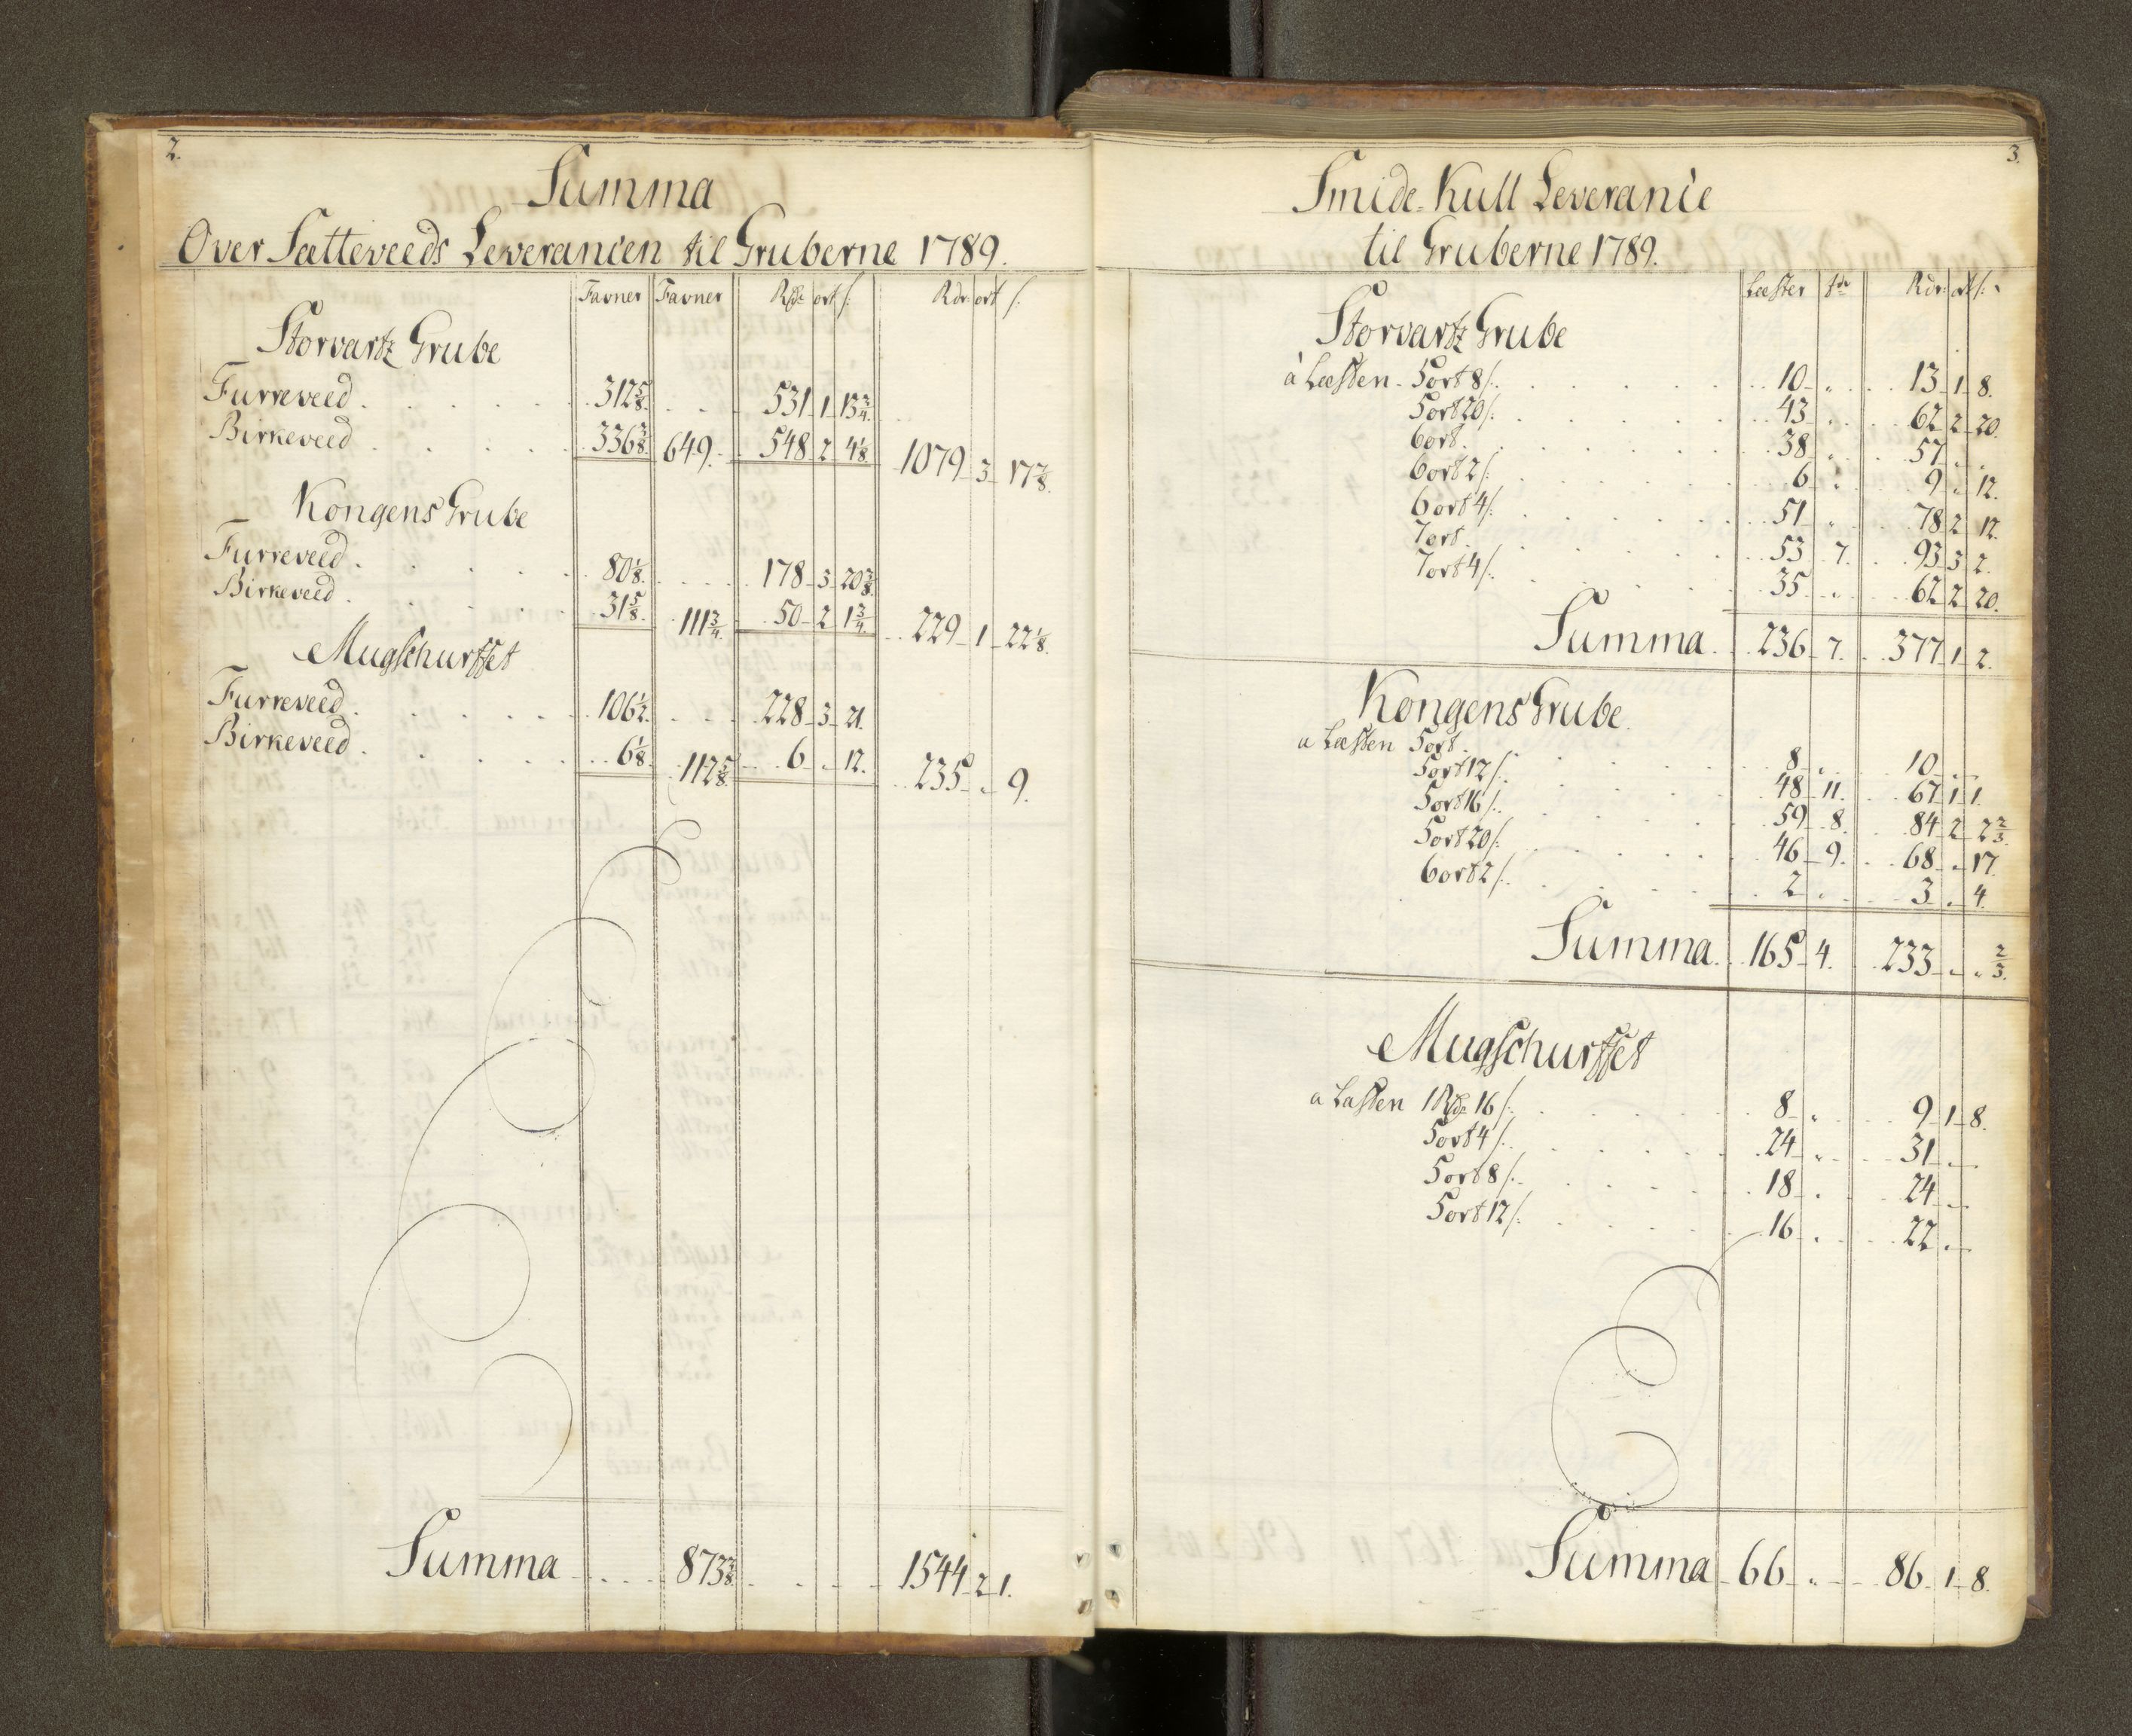 2.
Summa
Over Sætteveeds Leverancen til Gruberne 1789.
Favner Favner Rdr ort s. Rdr ort s.
Storvartz Grube
Furreveed 312 5/8 531 1 13 3/4
Birkeveed 336 3/8 649 548 2 4 1/8 1079 3 17 7/8
Kongens Grube
Furreveed 80 1/8 178 3 20 3/8
Birkeveed 31 5/8 111 3/4 50 2 1 3/4 229 1 22 1/8
Mugschurffet
Furreveed 106 1/2 228 3 21
Birkeveed 6 1/8 112 5/8 6 " 12 235 " 9
Summa 873 3/8 1544 2 1
3.
Smide-Kull Leverance
til Gruberne 1789.
Læster tdr Rdr ort s.
Storvartz Grube
à Læsten 5 ort 8 s. 10 " 13 1 8
5 ort 20 s. 43 " 62 2 20
6 ort 38 " 57 " "
6 ort 2 s. 6 " 9 " 12
6 ort 4 s. 51 " 78 2 12
7 ort 53 7 93 3 2
7 ort 4 s. 35 " 62 2 20
Summa 236 7 377 1 2
Kongens Grube
a Læsten 5 ort 8 " 10 "
5 ort 12 s. 48 11 67 1 1
5 ort 16 s. 59 8 84 2 2 2/3
5 ort 20 s. 46 9 68 " 17
6 ort 2 s. 2 " 3 " 4
Summa 165 4 233 " " 2/3
Mugschurffet
a Læsten 1 Rdr 16 s. 8 " 9 1 8
5 ort 4 s. 24 " 31 "
5 ort 8 s. 18 " 24 "
5 ort 12 s. 16 " 22 "
Summa 66 " 86 1 8